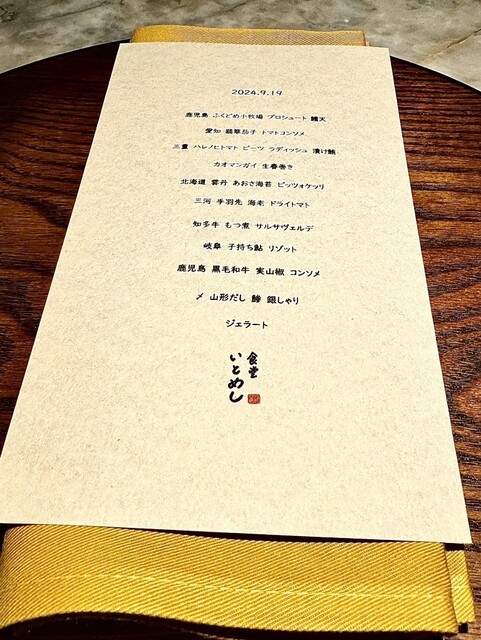 2024.9.19
鹿児島 ふくどめ小牧場 プロシュート 鱧天
愛知 翡翠茄子 トマトコンソメ
三重 ハレノヒトマト ビーツ ラディッシュ 漬け鮪
カオマンガイ 生春巻き
北海道 雲丹 あおさ海苔 ピッツォケッリ
三河 手羽先 海老 ドライトマト
知多牛 もつ煮 サルサヴェルデ
岐阜 子持ち鮎 リゾット
鹿児島 黒毛和牛 実山椒 コンソメ
〆 山形だし 鰺 銀しゃり
ジェラート
食堂
いとめし